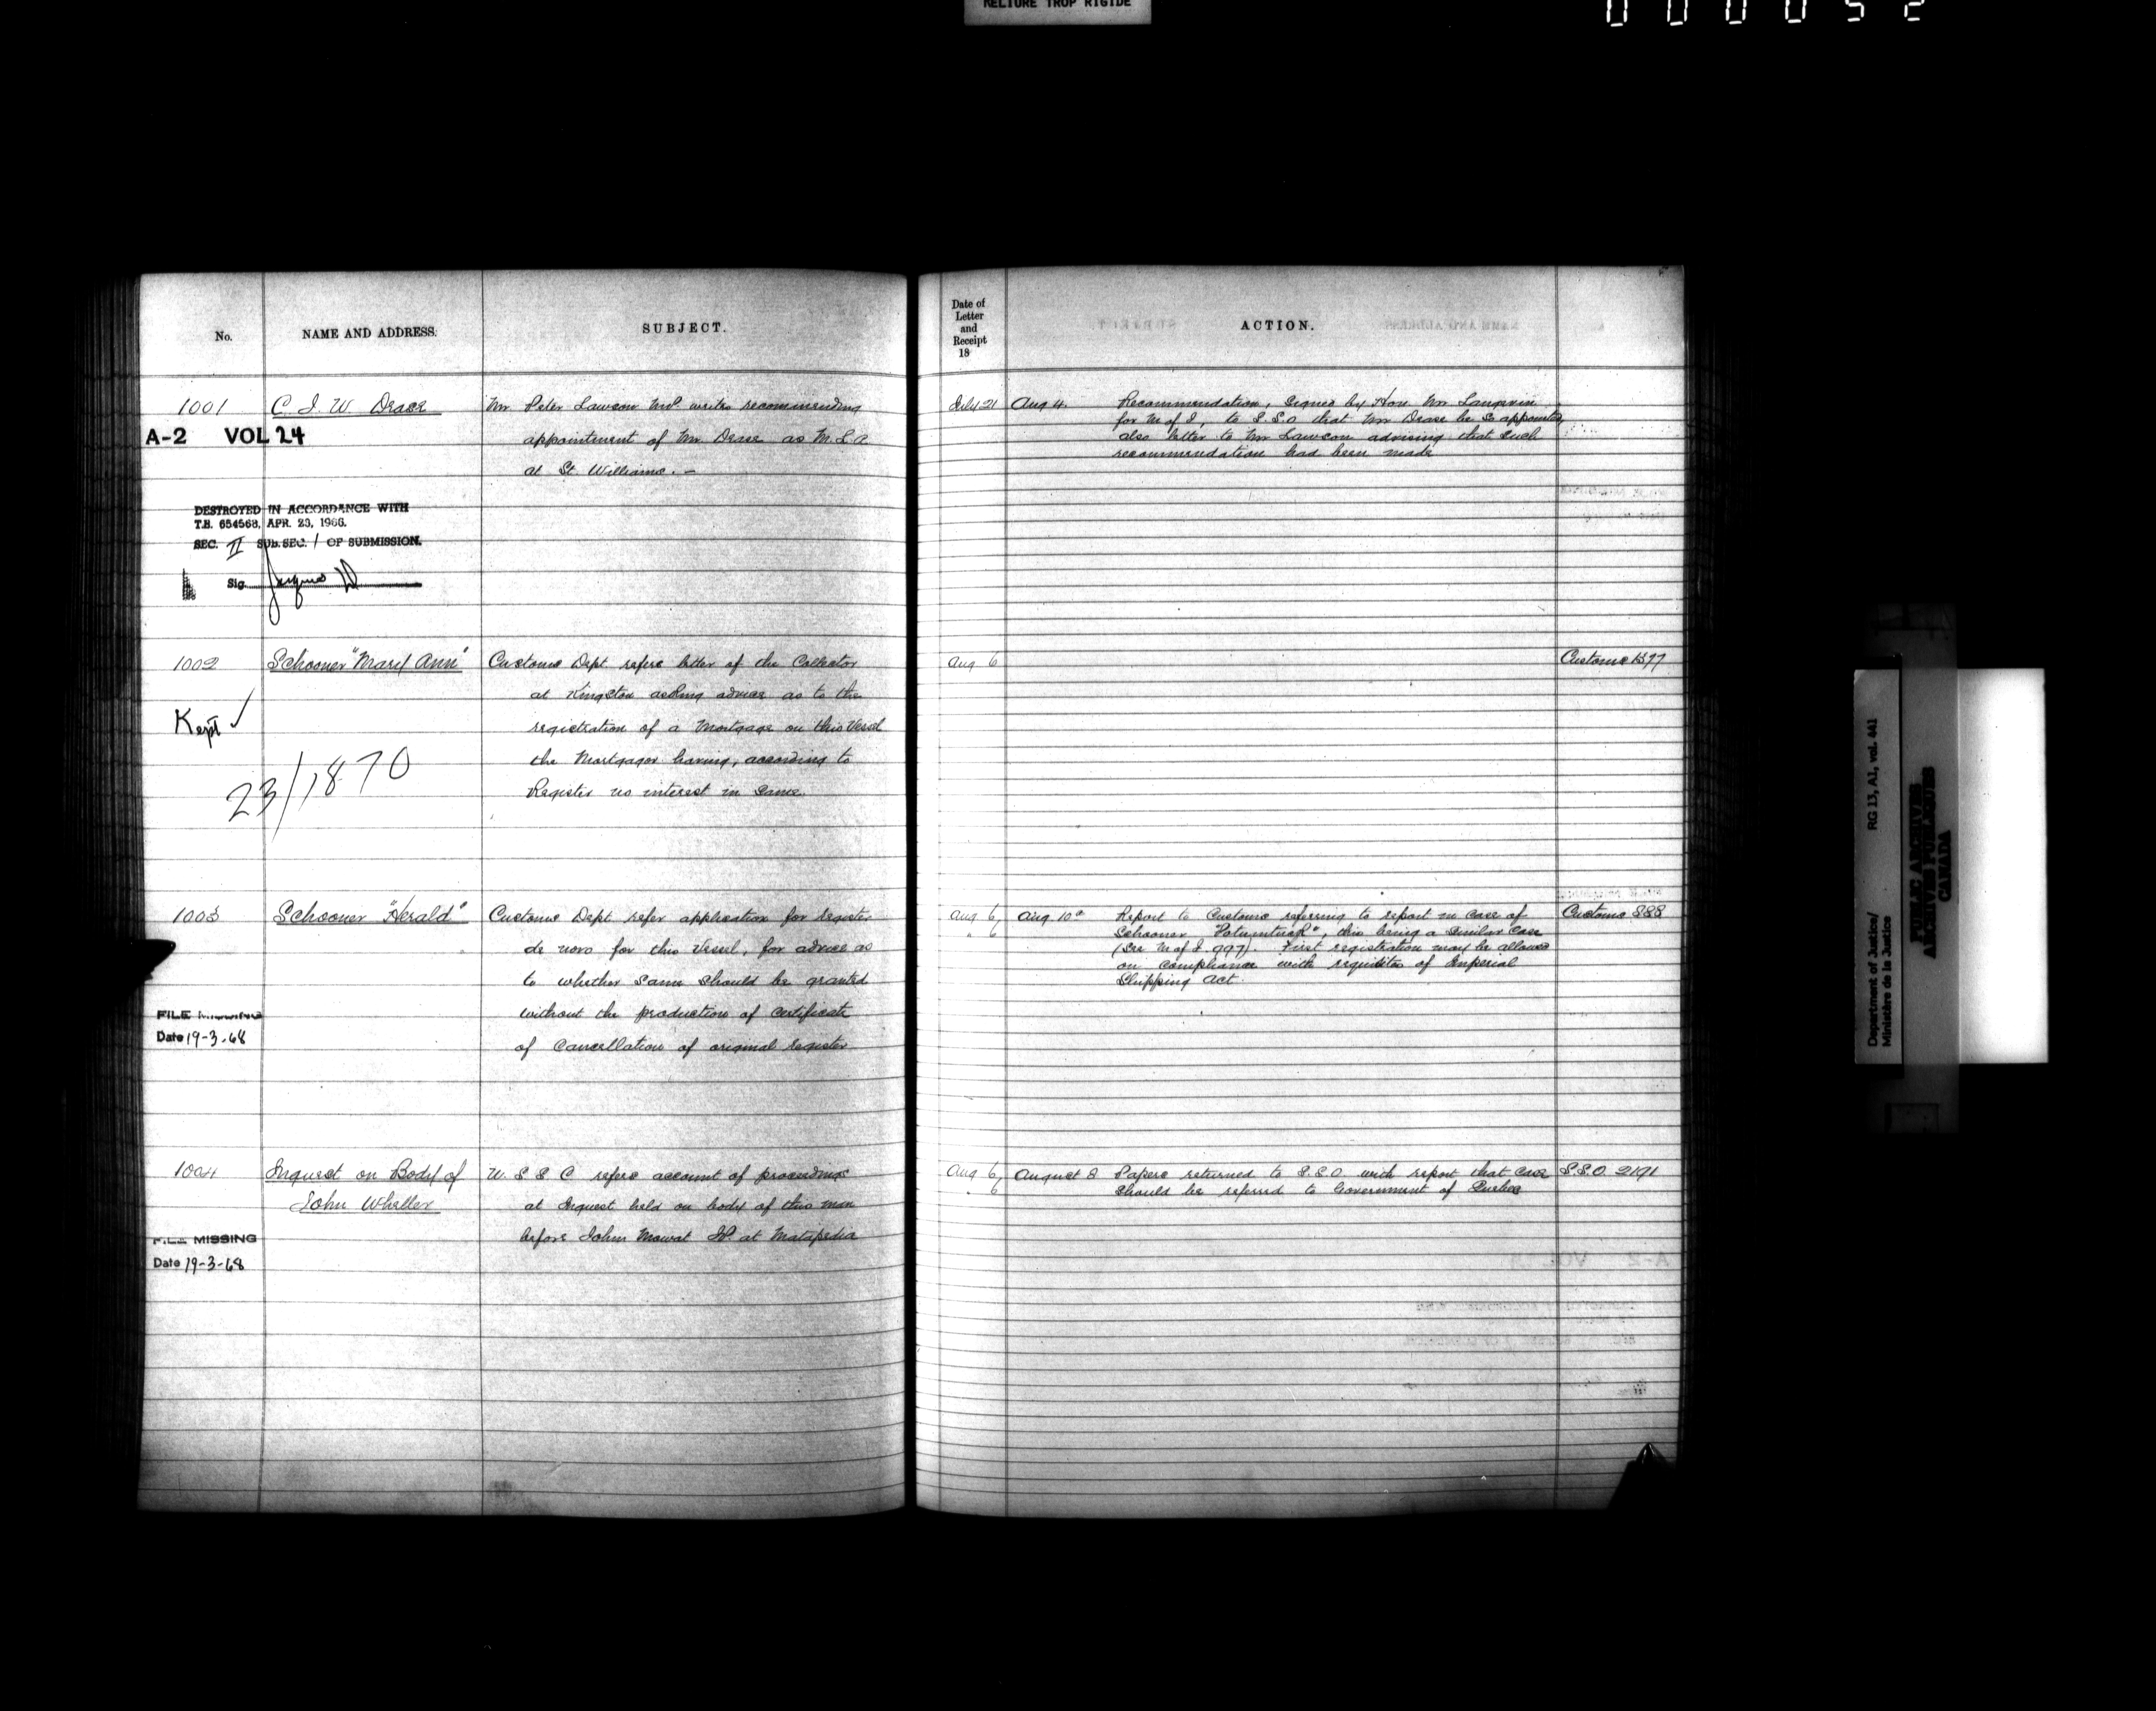 RELIURE TROP RIGIDE
000052
No.
NAME AND ADDRESS.
SUBJECT.
1001
C. J. W. Dease
Mr Peter Lawson MP. writes recommending
appointment of Mr Dease as M. L. A
at St. Williams. -
A-2 VOL 24
DESTROYED IN ACCORDANCE WITH
T.B. 654568, APR. 23, 1966.
SEC. II SUB. SEC. 1 OF SUBMISSION.
Sig.
1002
Schooner "Mary Ann"
Customs Dept refers letter of the Collector
at Kingston asking advice as to the
registration of a Mortgage on this Vessel
the Mortgagor having, according to
Register no interest in same.
Kept ✓
23/1870
1003
Schooner "Herald"
Customs Dept. refer application for register
de novo for this Vessel, for advice as
to whether same should be granted
without the production of certificate
of Cancellation of original register
FILE MISSING
Date 19-3-68
1004
Inquest on Body of
John Wheller
U S S C refers account of proceedings
at Inquest held on body of this man
before John Mowat JP. at Matapedia
FILE MISSING
Date 19-3-68
Date of
Letter
and
Receipt
18
ACTION.
July 21
Aug 4.
Recommendation, signed by Hon. Mr Langevin
for M of J, to S.S.O that Mr Dease be so appointed,
also letter to Mr Lawson advising that such
recommendation had been made
Aug 6
Customs 1577
Aug 6,
" 6
Aug. 10th
Report to Customs referring to report in case of
Schooner , this being a similar case
(See M of J. 997). First registration may be allowed
on compliance with requisites of Imperial
Shipping Act.
Customs 888
Aug 6,
" 6
August 8
Papers returned to S.S.O. with report that case
should be referred to Government of Quebec
S.S.O. 2191
Department of Justice/
Ministère de la Justice
RG 13, A1, vol. 441
PUBLIC ARCHIVES
ARCHIVES PUBLIQUES
CANADA